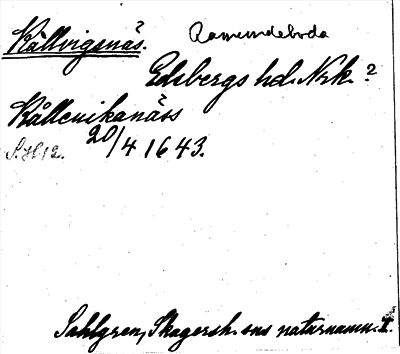 Kållvigsnäs. Ramundeboda
Edsbergs hd. Nrk. ?
Kållevikanäss
20/4 1643.
Sahlgren, Skagersh. sns naturnamn. I.